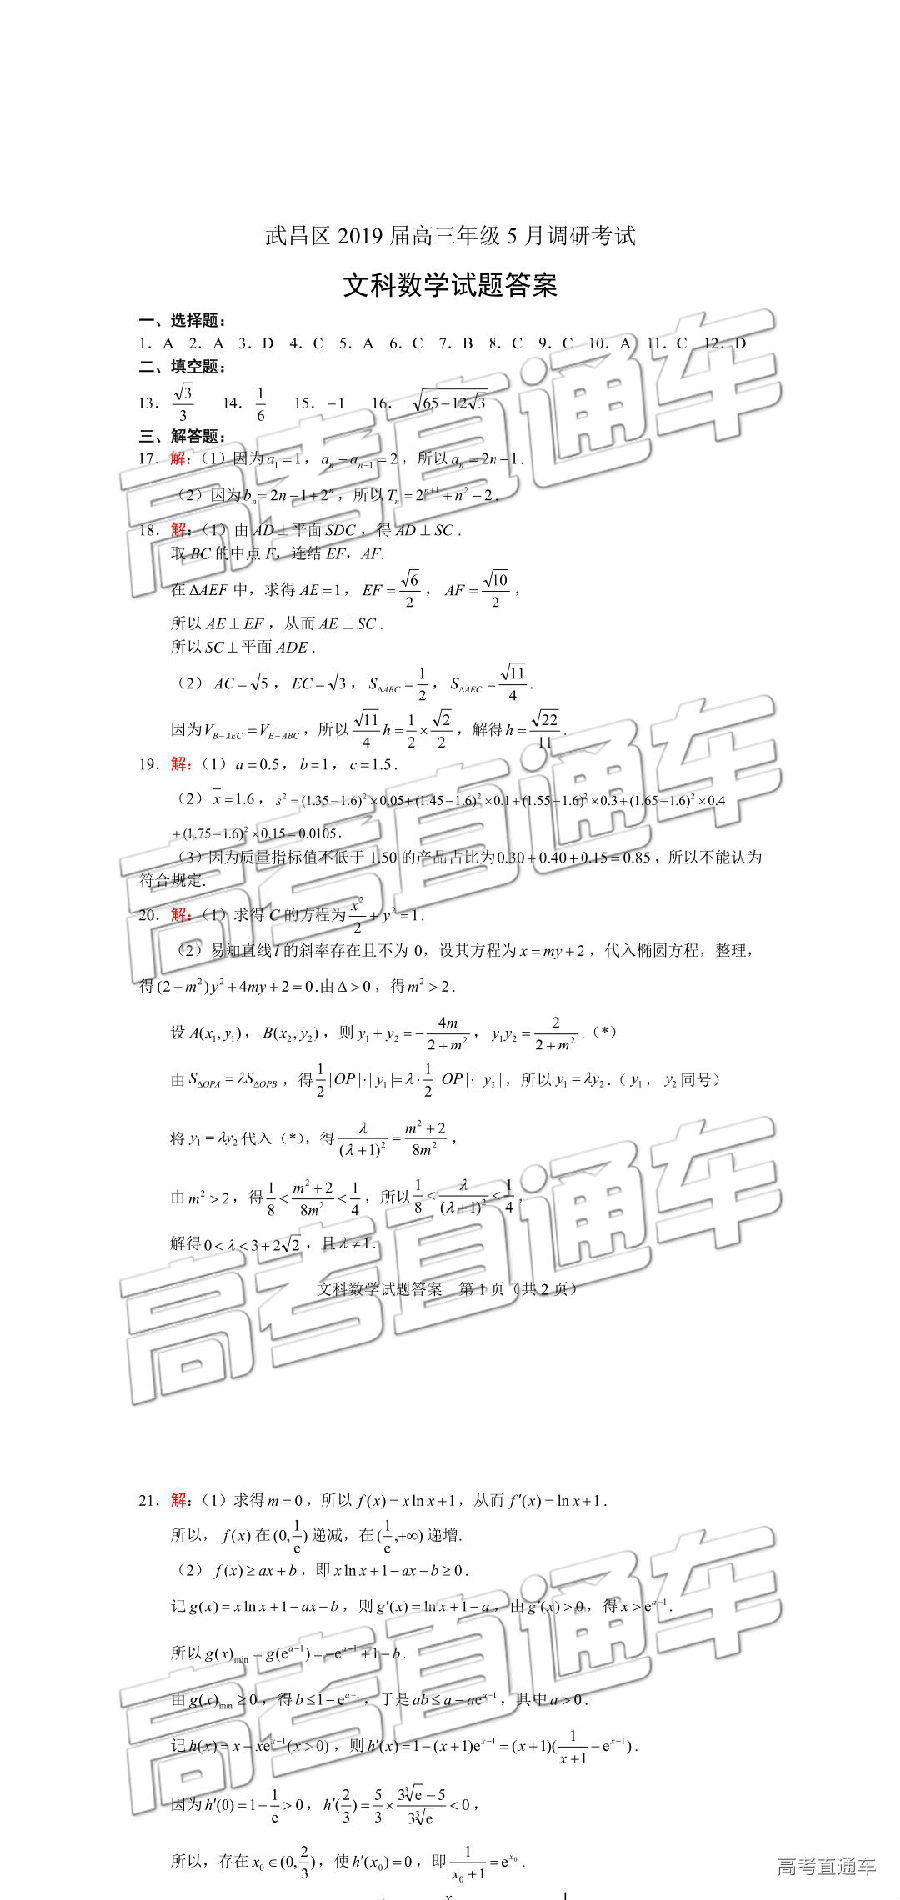 武昌区 2019 届高三年级 5 月调研考试
文科数学试题答案
一、选择题：
1. A 2. A 3. D 4. C 5. A 6. C 7. B 8. C 9. C 10. A 11. C 12. D
二、填空题：
13. √3/3 14. 1/6 15. −1 16. √(65−12√3)
三、解答题：
17. 解：（1）因为 a₁=1，aₙ−aₙ₋₁=2，所以 aₙ=2n−1.
（2）因为 bₙ=2n−1+2ⁿ，所以 Tₙ=2ⁿ⁺¹+n²−2.
18. 解：（1）由 AD⊥平面 SDC，得 AD⊥SC.
取 BC 的中点 F，连结 EF，AF.
在 ΔAEF 中，求得 AE=1，EF=√6/2，AF=√10/2，
所以 AE⊥EF，从而 AE⊥SC.
所以 SC⊥平面 ADE.
（2）AC=√5，EC=√3，S_ΔABC=1/2，S_ΔAEC=√11/4.
因为 V_B−AEC=V_E−ABC，所以 √11/4 h=1/2×√2/2，解得 h=√22/11.
19. 解：（1）a=0.5，b=1，c=1.5.
（2）x̄=1.6，s²=(1.35−1.6)²×0.05+(1.45−1.6)²×0.1+(1.55−1.6)²×0.3+(1.65−1.6)²×0.4
+(1.75−1.6)²×0.15=0.0105.
（3）因为质量指标值不低于 1.50 的产品占比为 0.30+0.40+0.15=0.85，所以不能认为
符合规定.
20. 解：（1）求得 C 的方程为 x²/2+y²=1.
（2）易知直线 l 的斜率存在且不为 0，设其方程为 x=my+2，代入椭圆方程，整理，
得 (2−m²)y²+4my+2=0.由 Δ>0，得 m²>2.
设 A(x₁,y₁)，B(x₂,y₂)，则 y₁+y₂=−4m/(2+m²)，y₁y₂=2/(2+m²).（*）
由 S_ΔOPA=λS_ΔOPB，得 1/2|OP|·|y₁|=λ·1/2|OP|·|y₂|，所以 y₁=λy₂.（y₁，y₂同号）
将 y₁=λy₂ 代入（*），得 λ/(λ+1)²=(m²+2)/8m²，
由 m²>2，得 1/8<(m²+2)/8m²<1/4，所以 1/8<λ/(λ+1)²<1/4，
解得 0<λ<3+2√2，且 λ≠1.
文科数学试题答案 第 1 页（共 2 页）
21. 解：（1）求得 m=0，所以 f(x)=xlnx+1，从而 f′(x)=lnx+1.
所以，f(x) 在 (0,1/e) 递减，在 (1/e,+∞) 递增.
（2）f(x)≥ax+b，即 xlnx+1−ax−b≥0.
记 g(x)=xlnx+1−ax−b，则 g′(x)=lnx+1−a，由 g′(x)>0，得 x>eᵃ⁻¹.
所以 g(x)min=g(eᵃ⁻¹)=−eᵃ⁻¹+1−b.
由 g(x)min≥0，得 b≤1−eᵃ⁻¹，于是 ab≤a−aeᵃ⁻¹，其中 a>0.
记 h(x)=x−xeˣ⁻¹(x>0)，则 h′(x)=1−(x+1)eˣ⁻¹=(x+1)(1/(x+1)−eˣ⁻¹).
因为 h′(0)=1−1/e>0，h′(2/3)=5/3×(3∛e−5)/(3∛e)<0，
所以，存在 x₀∈(0,2/3)，使 h′(x₀)=0，即 1/(x₀+1)=eˣ⁰.
高考直通车
高考直通车
高考直通车
高考直通车
高考直通车